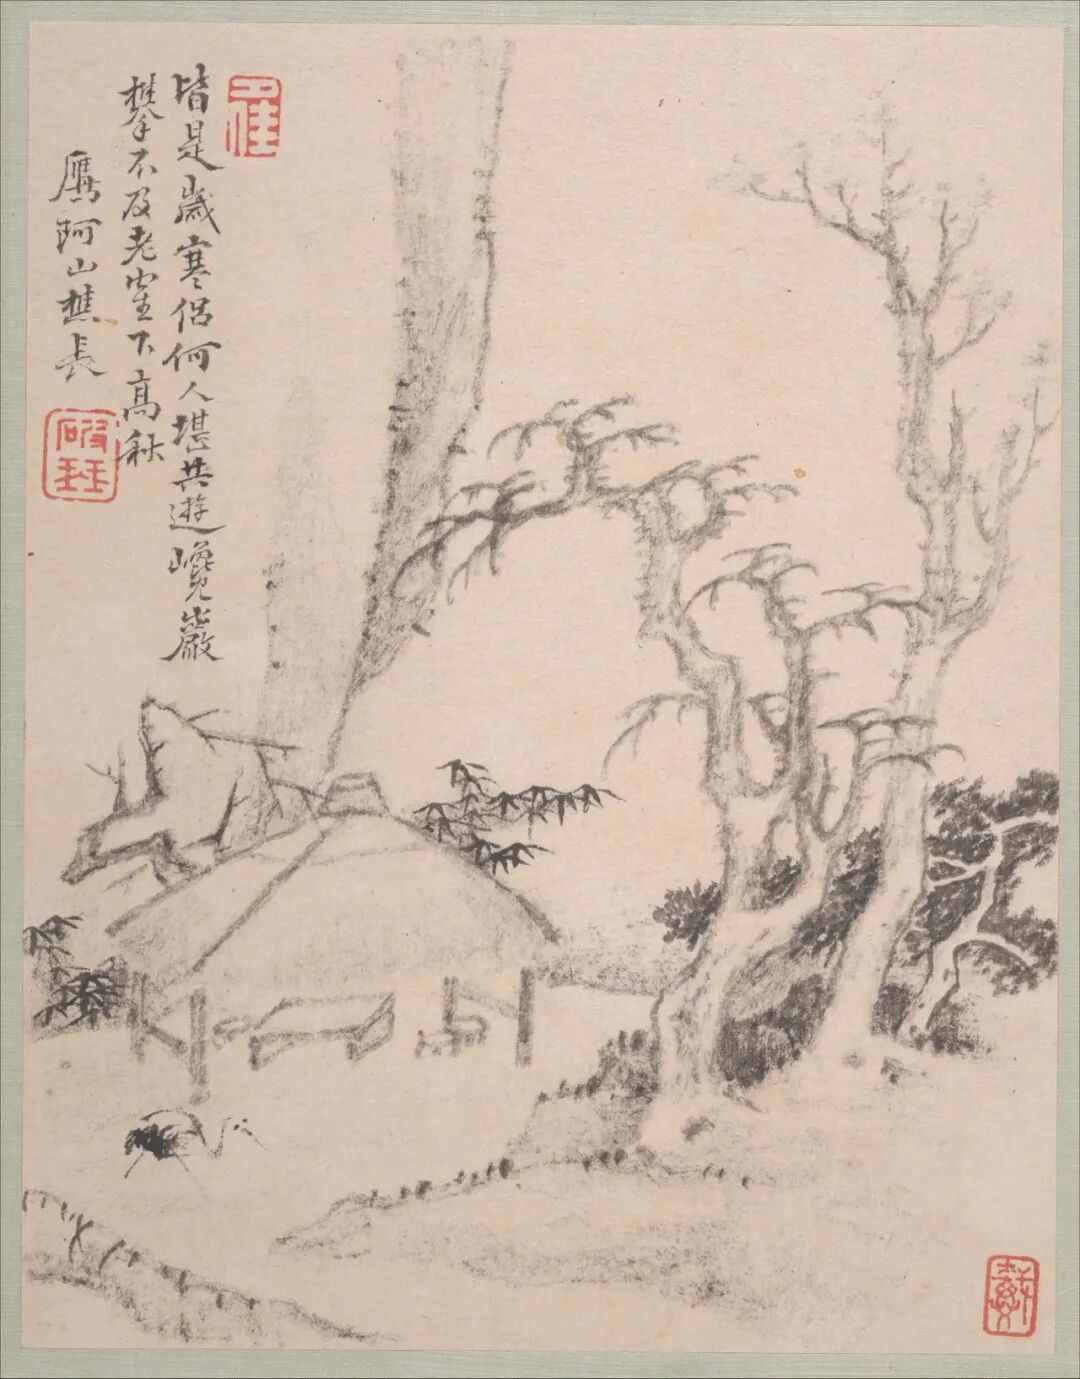 皆是歲寒侶何人堪共遊巉巖
攀不及老室下高秋
鷹阿山樵長